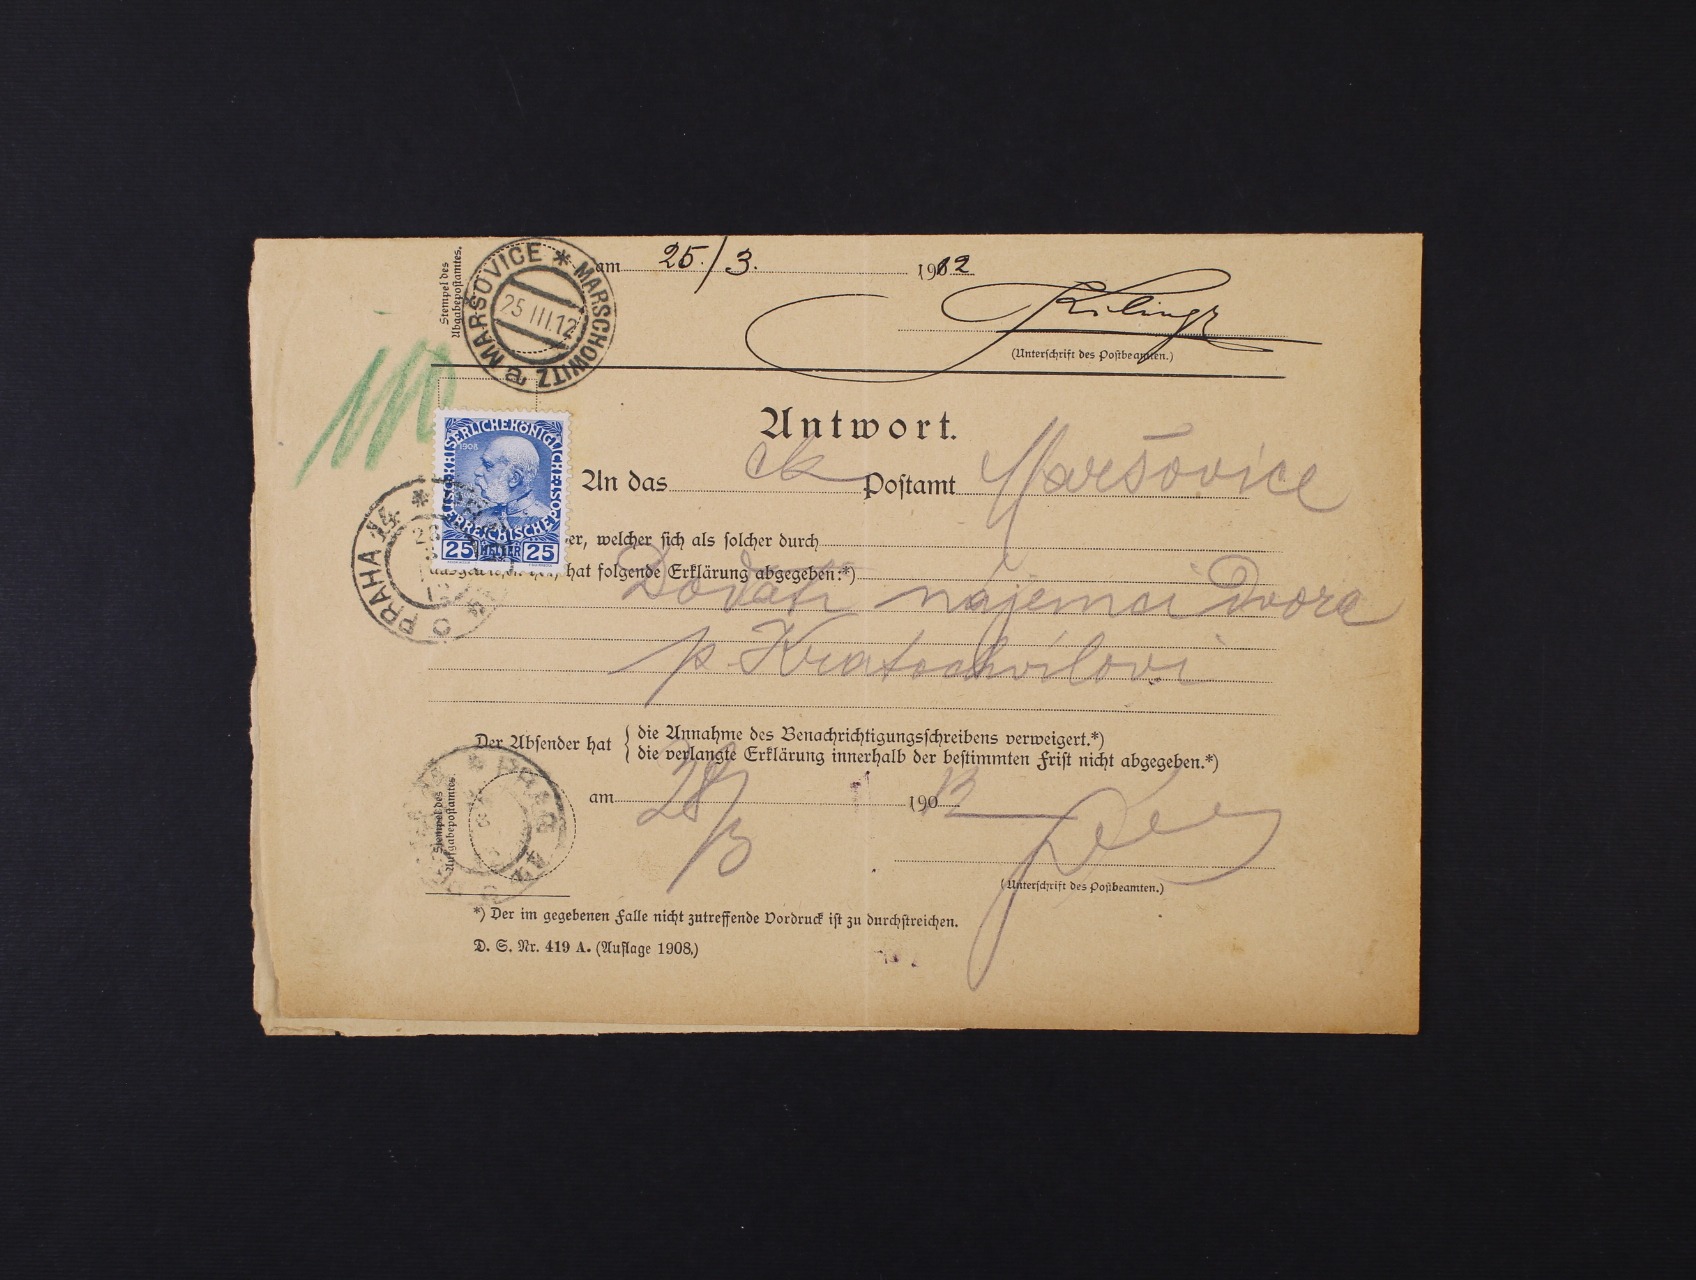 Stempel des
Abgabepostamtes.
MARŠOVICE * MARSCHOWITZ
25 III.12
am 25./3. 1912
(Unterschrift des Postbeamten.)
Antwort.
An das ck Postamt Maršovice
KAISERLICHE KÖNIGLICHE ÖSTERREICHISCHE POST
1908
25 HELLER 25
PRAHA
er, welcher sich als solcher durch
hat folgende Erklärung abgegeben:*)
Dodati nájemci dvora
p. Kratochvílovi
Der Absender hat { die Annahme des Benachrichtigungsschreibens verweigert.*)
die verlangte Erklärung innerhalb der bestimmten Frist nicht abgegeben.*)
Stempel des
Aufgabepostamtes
PRAG
am 28/3 1912
(Unterschrift des Postbeamten.)
*) Der im gegebenen Falle nicht zutreffende Vordruck ist zu durchstreichen.
D. S. Nr. 419 A. (Auflage 1908.)